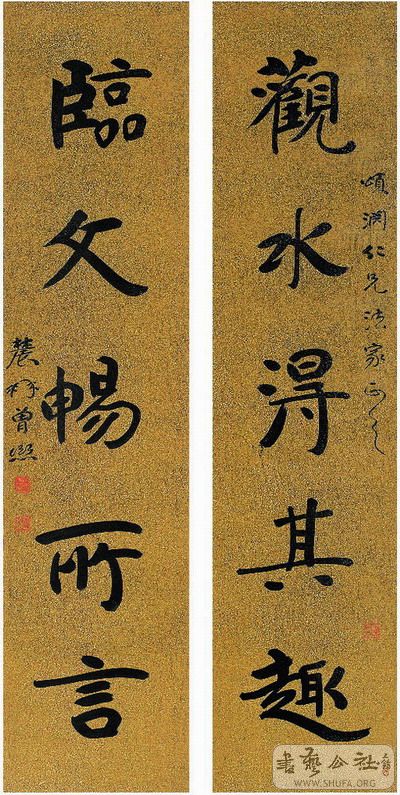 頌仁兄法家正之
觀水得其趣
臨文暢所言
農髯曾熙
書藝公社
WWW.SHUFA.ORG